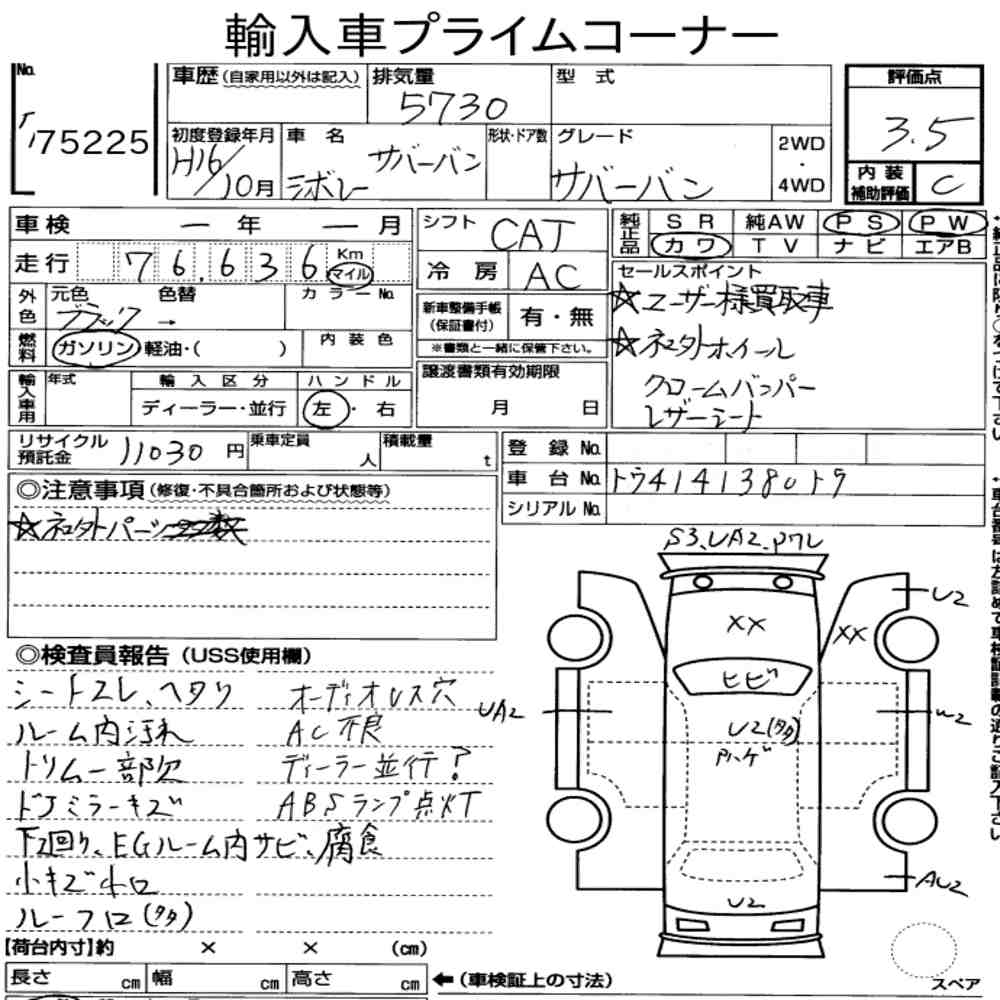 輸入車プライムコーナー
No. 75225
車歴(自家用以外は記入) 排気量 5730 型式
評価点 3.5
初度登録年月 H16/10月 車名 シボレー サバーバン 形状・ドア数 グレード サバーバン 2WD・4WD
内装補助評価 C
車検 ー年 ー月
シフト CAT
純正品 SR 純AW PS PW
カワ TV ナビ エアB
走行 76,636 Km マイル
冷房 AC
セールスポイント
外色 元色 ブラック → 色替 カラーNo.
新車整備手帳(保証書付) 有・無
※書類と一緒に保管下さい。
☆ユーザー様買取車
☆社外ホイール
クロームバンパー
レザーシート
燃料 ガソリン 軽油・( ) 内装色
譲渡書類有効期限
月 日
輸入車用 年式 輸入区分 ハンドル
ディーラー・並行 左・右
リサイクル預託金 11030円 乗車定員 人 積載量 t
登録No.
車台No. トウ41413801ウ
シリアルNo.
◎注意事項(修復・不具合箇所および状態等)
☆社外パーツ
S3、UA2、Pワレ
U2
XX
XX
ヒビ
UA2
U2(タタ)
Pハゲ
U2
AU2
スペア
◎検査員報告(USS使用欄)
シートスレ、ヘタリ オーディオレス穴
ルーム内汚れ AC不良
トリム一部欠 ディーラー並行?
ドアミラーキズ ABSランプ点灯
下回り、EGルーム内サビ、腐食
小キズ小凹
ルーフ凹(タタ)
【荷台内寸】約 × × (cm)
長さ cm 幅 cm 高さ cm ←(車検証上の寸法)